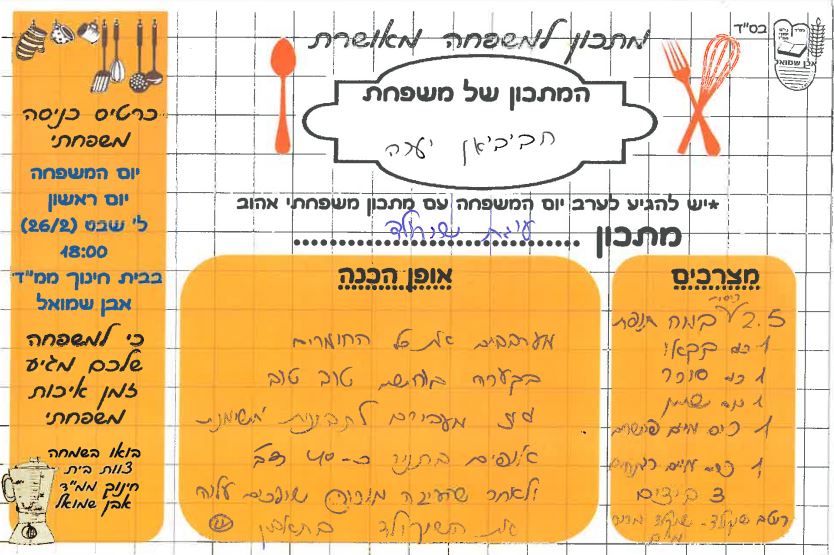 בס"ד
אבן שמואל
מתכון למשפחה מאושרת
המתכון של משפחת
חביביאן יערה
*יש להגיע לערב יום המשפחה עם מתכון משפחתי אהוב
מתכון עוגת שוקולד
כרטיס כניסה
משפחתי
יום המשפחה
יום ראשון
ל' שבט (26/2)
18:00
בבית חינוך ממ"ד
אבן שמואל
כי למשפחה
שלכם מגיע
זמן איכות
משפחתי
בואו בשמחה
צוות בית
חינוך ממ"ד
אבן שמואל
מצרכים
כוסות
2.5 קמח תופח
1 כוס קקאו
1 כוס סוכר
1 כוס שמן
1 כוס מים פושרים
1 כוס מים
3 ביצים
רוטב שוקולד - שוקולד
אופן הכנה
מערבבים את כל החומרים
בקערה טוב טוב
מעבירים לתבנית משומנת
אופים בתנור כ-40 דק'
ולאחר שהעוגה מוכנה שופכים עליה
את השוקולד בתאבון